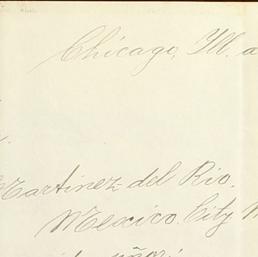 Chicago, Ill.
Martinez del Rio.
Mexico. City